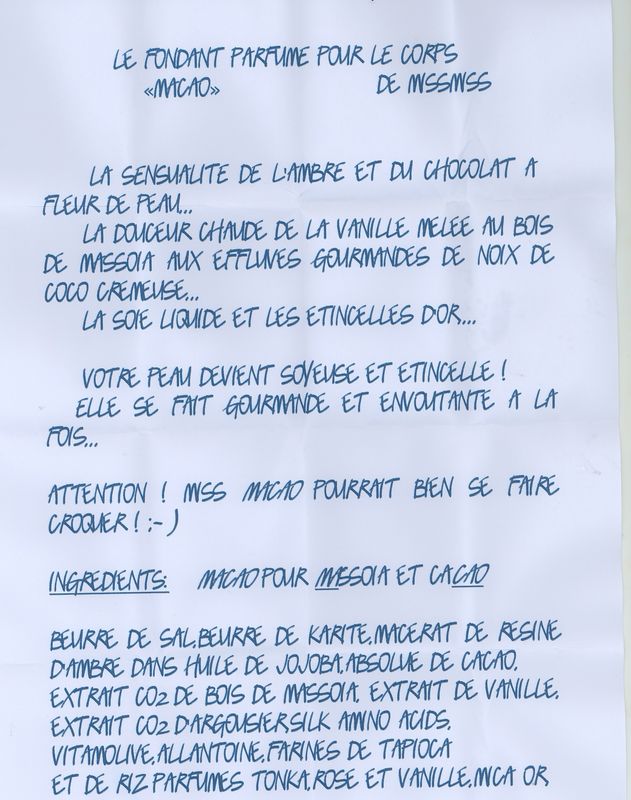 LE FONDANT PARFUME POUR LE CORPS
«MACAO» DE MISSMISS
LA SENSUALITE DE L'AMBRE ET DU CHOCOLAT A
FLEUR DE PEAU...
LA DOUCEUR CHAUDE DE LA VANILLE MELEE AU BOIS
DE MASSOIA AUX EFFLUVES GOURMANDES DE NOIX DE
COCO CREMEUSE...
LA SOIE LIQUIDE ET LES ETINCELLES D'OR...
VOTRE PEAU DEVIENT SOYEUSE ET ETINCELLE !
ELLE SE FAIT GOURMANDE ET ENVOUTANTE A LA
FOIS...
ATTENTION ! MISS MACAO POURRAIT BIEN SE FAIRE
CROQUER ! :-)
INGREDIENTS: MACAO POUR MASSOIA ET CACAO
BEURRE DE SAL,BEURRE DE KARITE,MACERAT DE RESINE
D'AMBRE DANS HUILE DE JOJOBA,ABSOLUE DE CACAO,
EXTRAIT CO2 DE BOIS DE MASSOIA, EXTRAIT DE VANILLE,
EXTRAIT CO2 D'ARGOUSIER,SILK AMINO ACIDS,
VITAMOLIVE,ALLANTOINE,FARINES DE TAPIOCA
ET DE RIZ,PARFUMES TONKA,ROSE ET VANILLE,MICA OR,